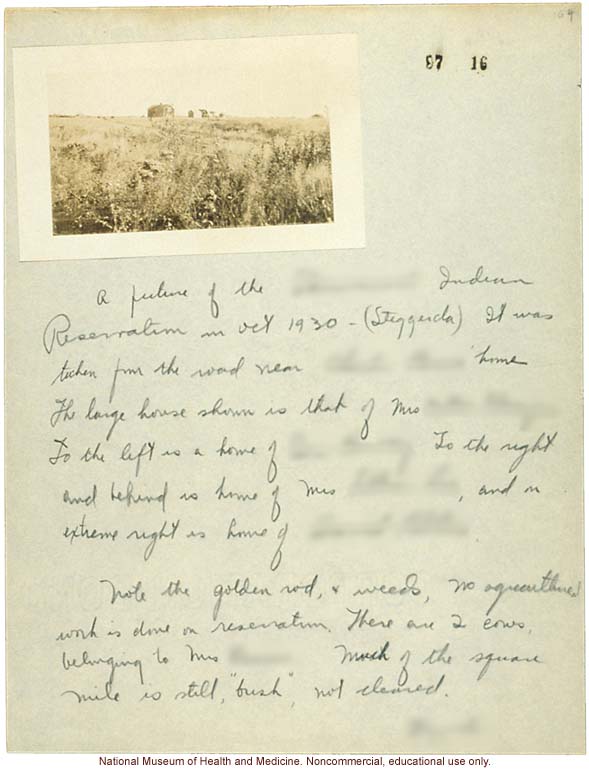 64
97 16
A picture of the Indian
Reservation in Oct 1930 - (Steggerda) It was
taken from the road near home
The large house shown is that of Mrs
To the left is a home of To the right
and behind is home of Mrs , and on
extreme right is home of
Note the golden rod, & weeds, no agricultural
work is done on reservation. There are 2 cows,
belonging to Mrs Much of the square
mile is still, "bush", not cleared.
National Museum of Health and Medicine. Noncommercial, educational use only.